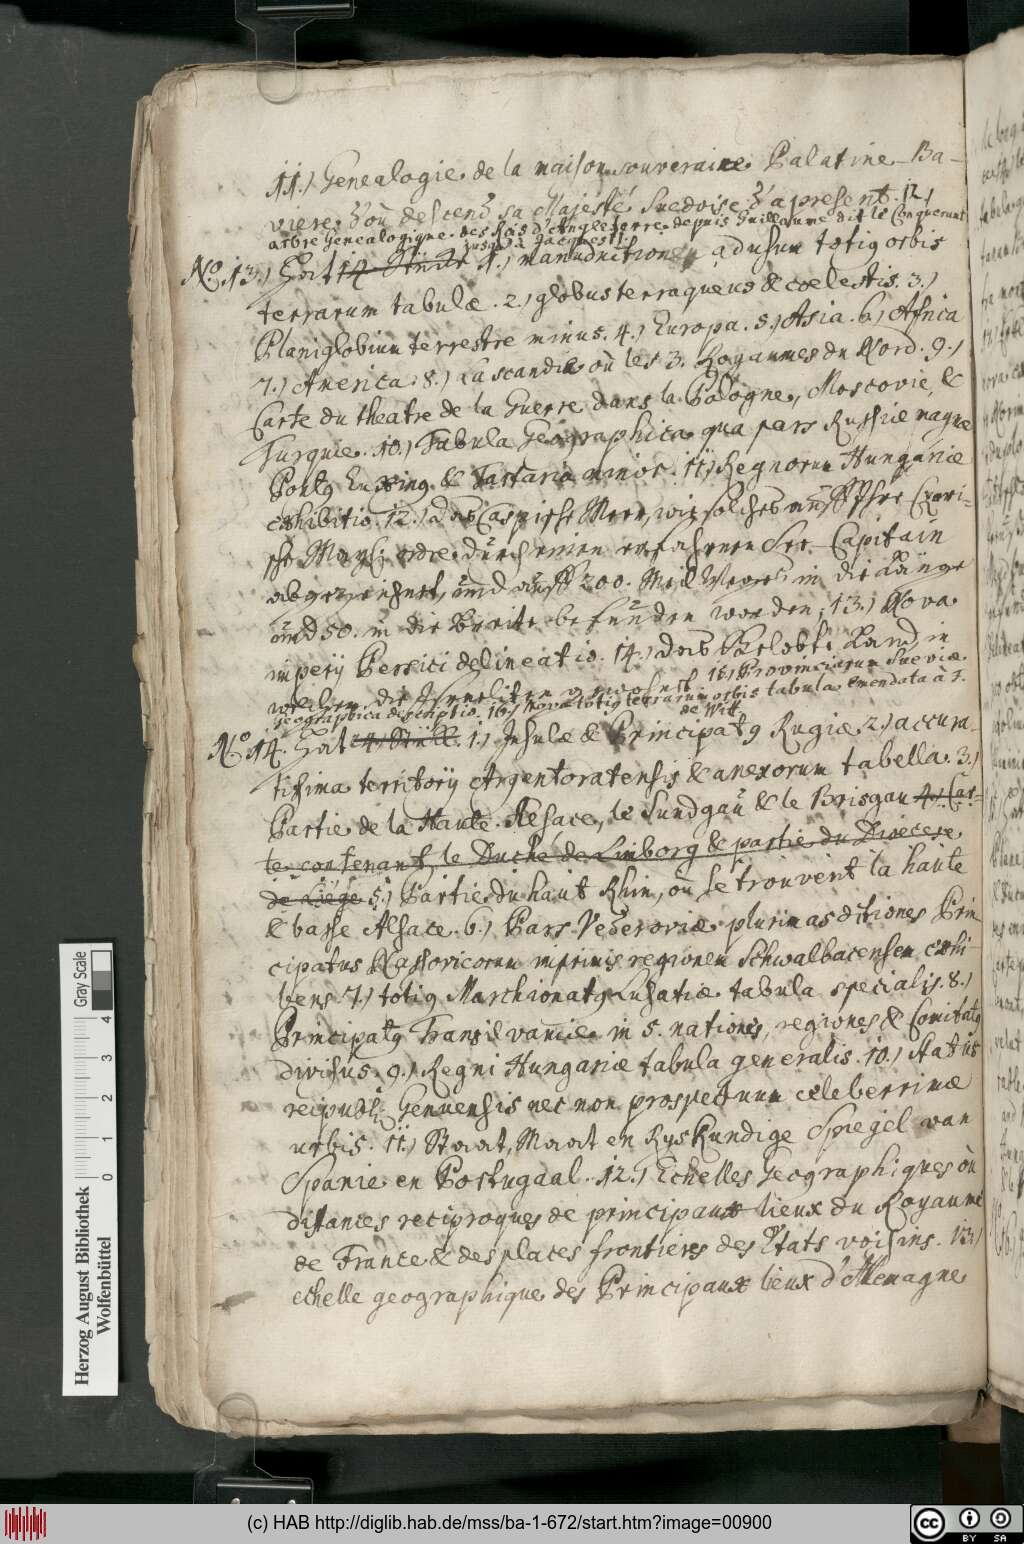 11.) Genealogie de la maison souveraine Palatine-Ba-
viere d'où descend sa Majesté Suedoise d'apresent. 12.)
arbre Genealogique des Rois d'Angleterre depuis Guillaume dit le Conquerant
jusqu'à Jacques I.
No. 13.) Hat 12 Stücke 1.) manuductionem ad usum totig orbis
terrarum tabulæ. 2.) globus terraqueus & coelestis. 3.)
Planiglobium terrestre minus. 4.) Europa. 5.) Asia. 6.) Africa
7.) America. 8.) La Scandie où les 3. Royaumes du Nord. 9.)
Carte du theatre de la Guerre dans la Pologne, Moscovie, &
Turquie. 10.) Tabula Geographica qua pars Russiæ magnæ
Pontg Euxing & Tartaria minor. 11.) Regnorum Hungariæ
exhibitio. 12.) das Caspische Meer, wie solches auff Ihre Czari-
sche Mayst: ordre durch einen erfahrnen See-Capitain
abgezeichnet, und auff 200. Meil Weges in die Länge
und 50. in die Breite befunden worden; 13.) Nova
imperij Persici delineatio. 14.) das Gelobte Land, in
welchem die Israeliten gewohnet 15.) Provinciarum Sueviæ
geographica descriptio. 16.) Nova totig terrarum orbis tabula emendata à F.
de Witt.
No. 14. Hat 24 Stück. 1.) Insulæ & Principatg Rugiæ 2.) accura-
tissima territorij Argentoratensis & anexorum tabella. 3.)
Partie de la Haute Alsace, le Sundgau & le Brisgau 4.) Car-
te contenant le Duché de Limborg & partie du Diocese
de Liège 5.) Partie du haut Rhin, où se trouvent la haute
& basse Alsace. 6.) Pars Vederoviæ plurimas ditiones Prin
cipatus Nassovicorum inprimis regionem Schwalbacensem exhi-
bens 7.) totig Marchionatg Lusatiæ tabula specialis. 8.)
Principatg Transilvaniæ in 5. nationes, regiones & Comitatg
divisus. 9.) Regni Hungariæ tabula generalis. 10.) Status
reipubl: Genuensis nec non prospectum celeberrimæ
urbis. 11.) Staat, Maat en Ryskundige Spiegel van
Spanie en Portugaal. 12.) Echelles Geographiques où
distances reciproques de principaux lieux du Royaume
de France & des places frontieres des Etats voisins. 13.)
echelle geographique des Principaux lieux d'Allemagne
Herzog August Bibliothek
Wolfenbüttel
Gray Scale
0 1 2 3 4
(c) HAB http://diglib.hab.de/mss/ba-1-672/start.htm?image=00900
cc BY SA